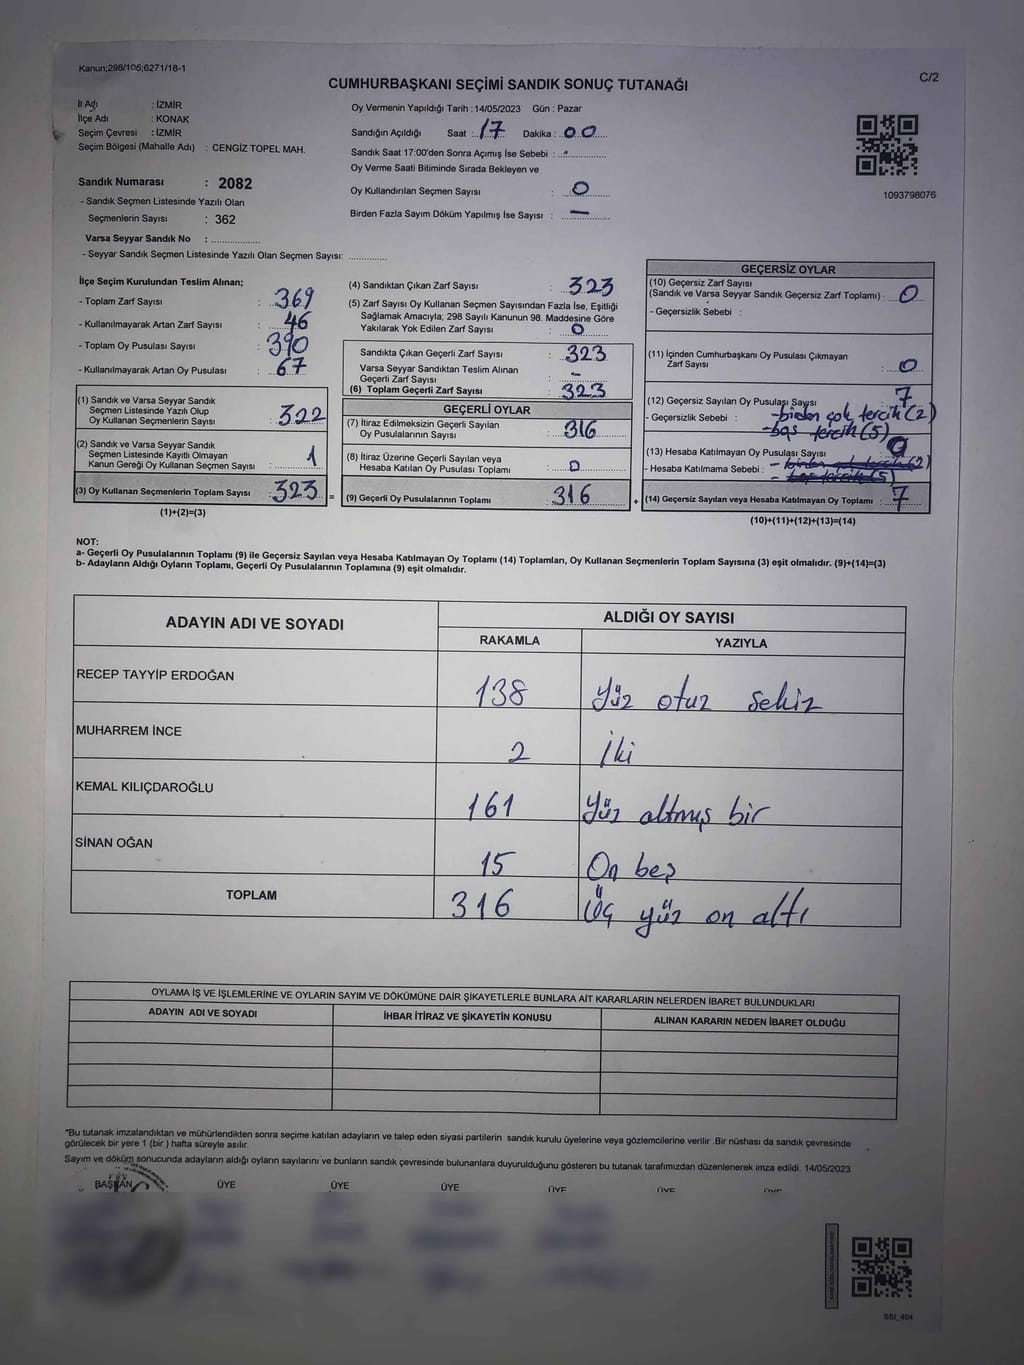 Kanun;298/105;6271/18-1
C/2
CUMHURBAŞKANI SEÇİMİ SANDIK SONUÇ TUTANAĞI
İl Adı : İZMİR
İlçe Adı : KONAK
Seçim Çevresi : İZMİR
Seçim Bölgesi (Mahalle Adı) : CENGİZ TOPEL MAH.
Sandık Numarası : 2082
- Sandık Seçmen Listesinde Yazılı Olan
Seçmenlerin Sayısı : 362
Varsa Seyyar Sandık No : ..................
- Seyyar Sandık Seçmen Listesinde Yazılı Olan Seçmen Sayısı: ..............
Oy Vermenin Yapıldığı Tarih : 14/05/2023 Gün : Pazar
Sandığın Açıldığı Saat : 17 Dakika : 00
Sandık Saat 17:00'den Sonra Açımış İse Sebebi :
Oy Verme Saati Bitiminde Sırada Bekleyen ve
Oy Kullandırılan Seçmen Sayısı : 0
Birden Fazla Sayım Döküm Yapılmış İse Sayısı : —
1093798076
İlçe Seçim Kurulundan Teslim Alınan;
- Toplam Zarf Sayısı : 369
- Kullanılmayarak Artan Zarf Sayısı : 46
- Toplam Oy Pusulası Sayısı : 390
- Kullanılmayarak Artan Oy Pusulası : 67
(1) Sandık ve Varsa Seyyar Sandık
Seçmen Listesinde Yazılı Olup
Oy Kullanan Seçmenlerin Sayısı : 322
(2) Sandık ve Varsa Seyyar Sandık
Seçmen Listesinde Kayıtlı Olmayan
Kanun Gereği Oy Kullanan Seçmen Sayısı : 1
(3) Oy Kullanan Seçmenlerin Toplam Sayısı : 323 =
(1)+(2)=(3)
(4) Sandıktan Çıkan Zarf Sayısı : 323
(5) Zarf Sayısı Oy Kullanan Seçmen Sayısından Fazla İse, Eşitliği
Sağlamak Amacıyla; 298 Sayılı Kanunun 98. Maddesine Göre
Yakılarak Yok Edilen Zarf Sayısı : 0
Sandıkta Çıkan Geçerli Zarf Sayısı : 323
Varsa Seyyar Sandıktan Teslim Alınan
Geçerli Zarf Sayısı : -
(6) Toplam Geçerli Zarf Sayısı : 323
GEÇERLİ OYLAR
(7) İtiraz Edilmeksizin Geçerli Sayılan
Oy Pusulalarının Sayısı : 316
(8) İtiraz Üzerine Geçerli Sayılan veya
Hesaba Katılan Oy Pusulası Toplamı : 0
(9) Geçerli Oy Pusulalarının Toplamı : 316 +
GEÇERSİZ OYLAR
(10) Geçersiz Zarf Sayısı
(Sandık ve Varsa Seyyar Sandık Geçersiz Zarf Toplamı) : 0
- Geçersizlik Sebebi :
(11) İçinden Cumhurbaşkanı Oy Pusulası Çıkmayan
Zarf Sayısı : 0
(12) Geçersiz Sayılan Oy Pusulası Sayısı 7
- Geçersizlik Sebebi : -birden çok tercih (2)
-boş tercih (5)
(13) Hesaba Katılmayan Oy Pusulası Sayısı : 0
- Hesaba Katılmama Sebebi : - birden çok tercih (2)
- boş tercih (5)
(14) Geçersiz Sayılan veya Hesaba Katılmayan Oy Toplamı : 7
(10)+(11)+(12)+(13)=(14)
NOT:
a- Geçerli Oy Pusulalarının Toplamı (9) ile Geçersiz Sayılan veya Hesaba Katılmayan Oy Toplamı (14) Toplamları, Oy Kullanan Seçmenlerin Toplam Sayısına (3) eşit olmalıdır. (9)+(14)=(3)
b- Adayların Aldığı Oyların Toplamı, Geçerli Oy Pusulalarının Toplamına (9) eşit olmalıdır.
ADAYIN ADI VE SOYADI
ALDIĞI OY SAYISI
RAKAMLA YAZIYLA
RECEP TAYYİP ERDOĞAN 138 Yüz otuz sekiz
MUHARREM İNCE 2 İki
KEMAL KILIÇDAROĞLU 161 Yüz altmış bir
SİNAN OĞAN 15 On beş
TOPLAM 316 Üç yüz on altı
OYLAMA İŞ VE İŞLEMLERİNE VE OYLARIN SAYIM VE DÖKÜMÜNE DAİR ŞİKAYETLERLE BUNLARA AİT KARARLARIN NELERDEN İBARET BULUNDUKLARI
ADAYIN ADI VE SOYADI İHBAR İTİRAZ VE ŞİKAYETİN KONUSU ALINAN KARARIN NEDEN İBARET OLDUĞU
*Bu tutanak imzalandıktan ve mühürlendikten sonra seçime katılan adayların ve talep eden siyasi partilerin sandık kurulu üyelerine veya gözlemcilerine verilir .Bir nüshası da sandık çevresinde
görülecek bir yere 1 (bir ) hafta süreyle asılır.
Sayım ve döküm sonucunda adayların aldığı oyların sayılarını ve bunların sandık çevresinde bulunanlara duyurulduğunu gösteren bu tutanak tarafımızdan düzenlenerek imza edildi. 14/05/2023
BAŞKAN ÜYE ÜYE ÜYE ÜYE ÜYE ÜYE
BBI_404